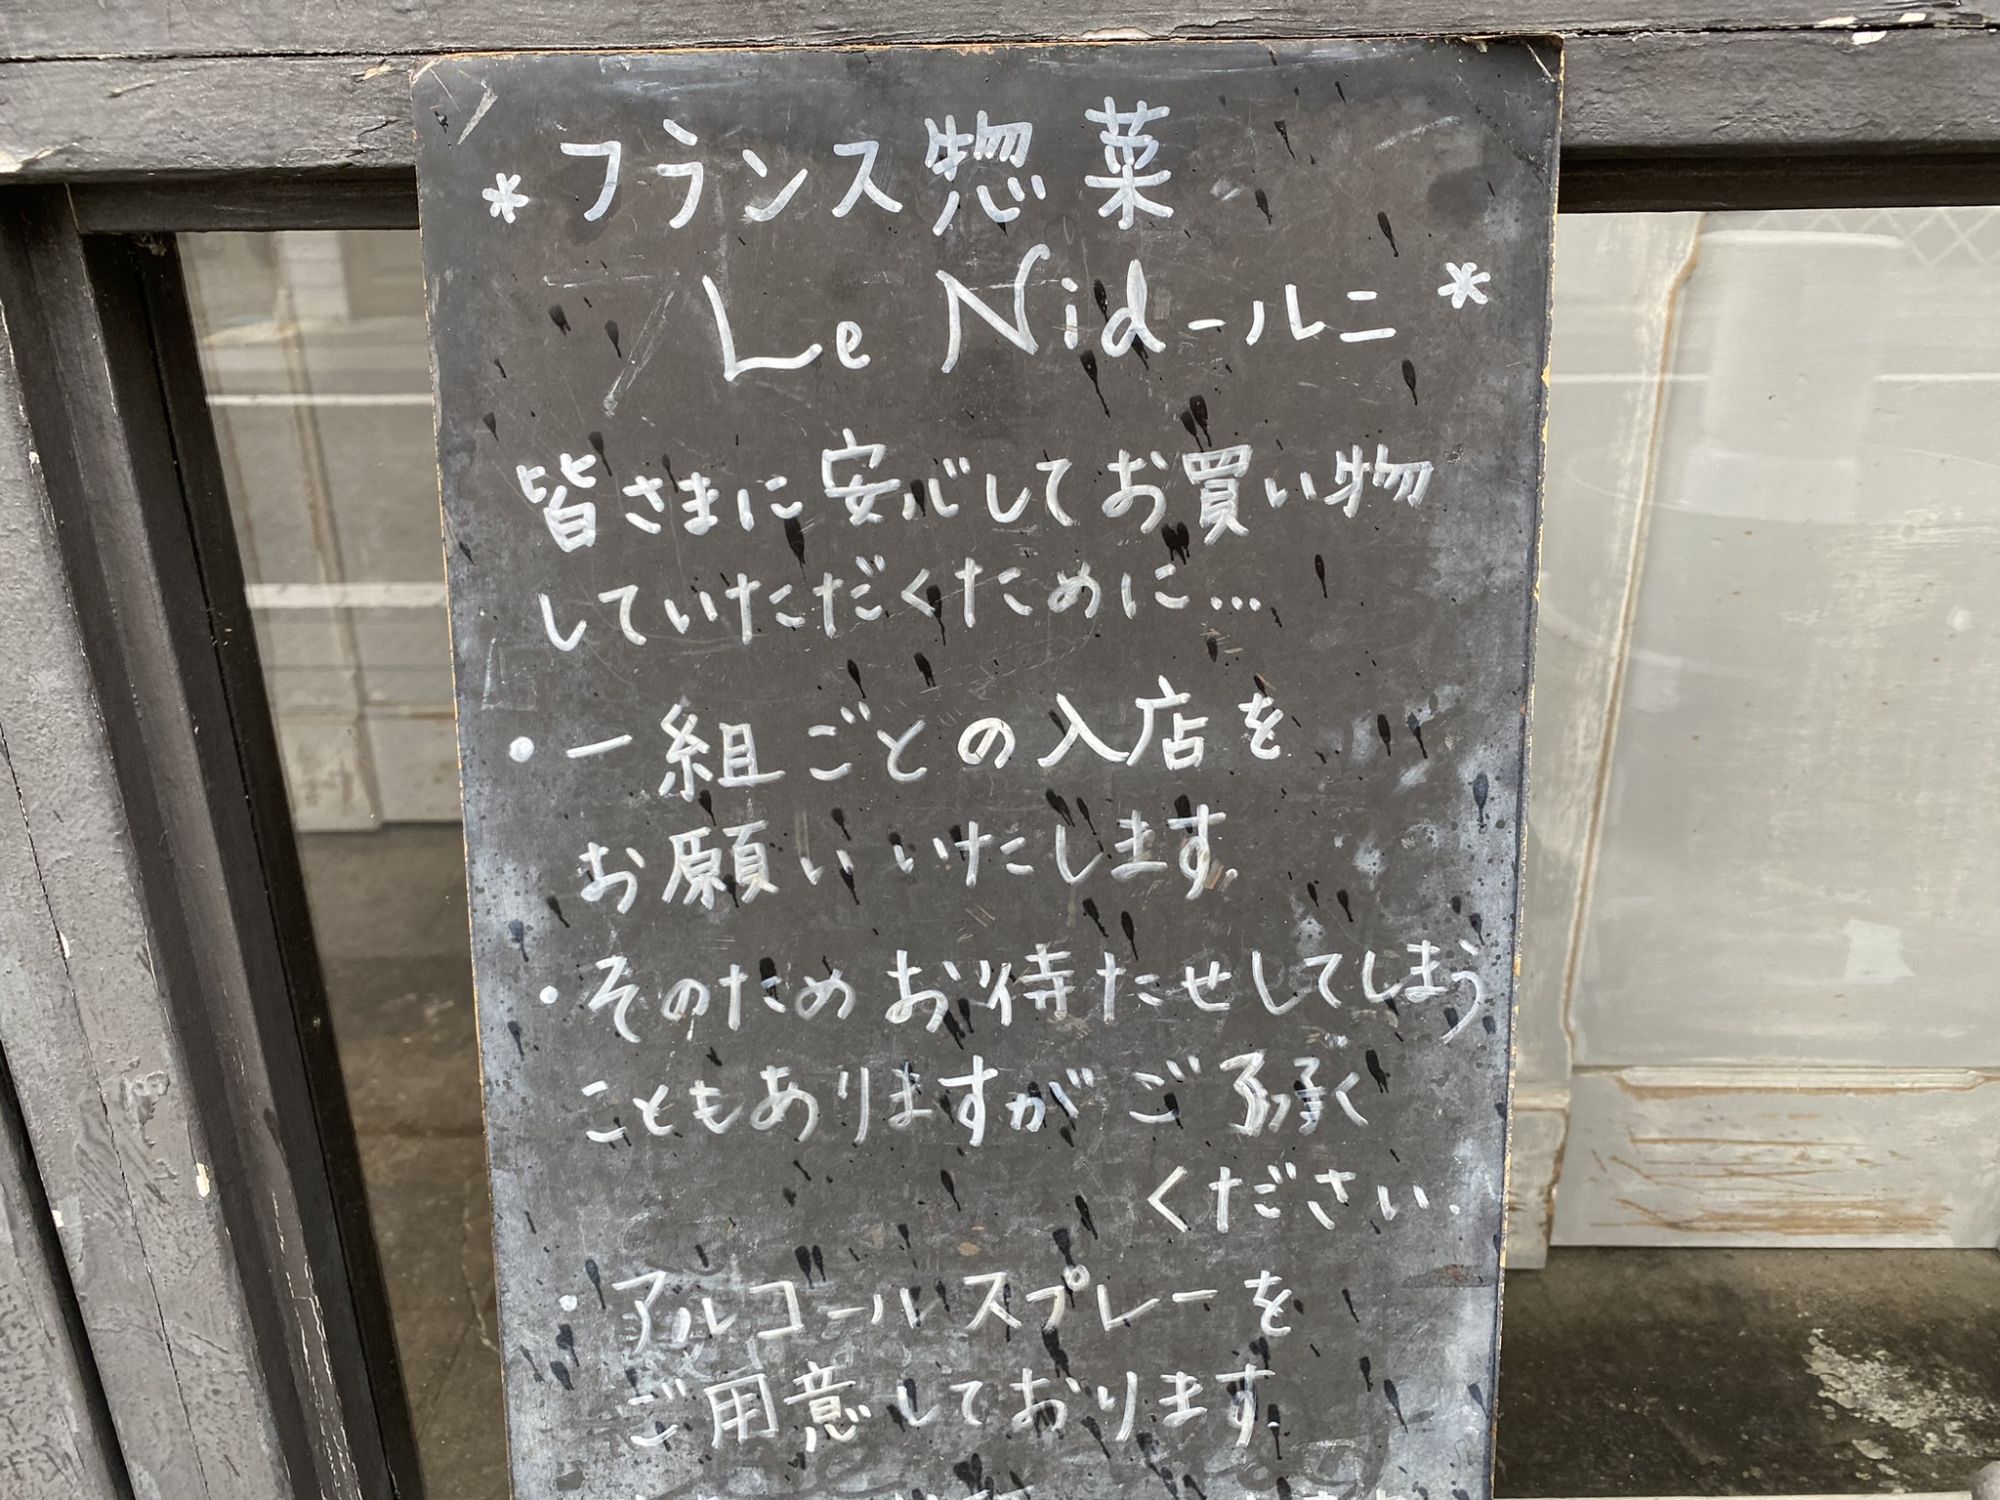 *フランス惣菜
Le Nid-ルニ*
皆さまに安心してお買い物
していただくために…
・一組ごとの入店を
お願いいたします。
・そのためお待たせしてしまう
こともありますがご了承く
ください.
・アルコールスプレーを
ご用意しております。